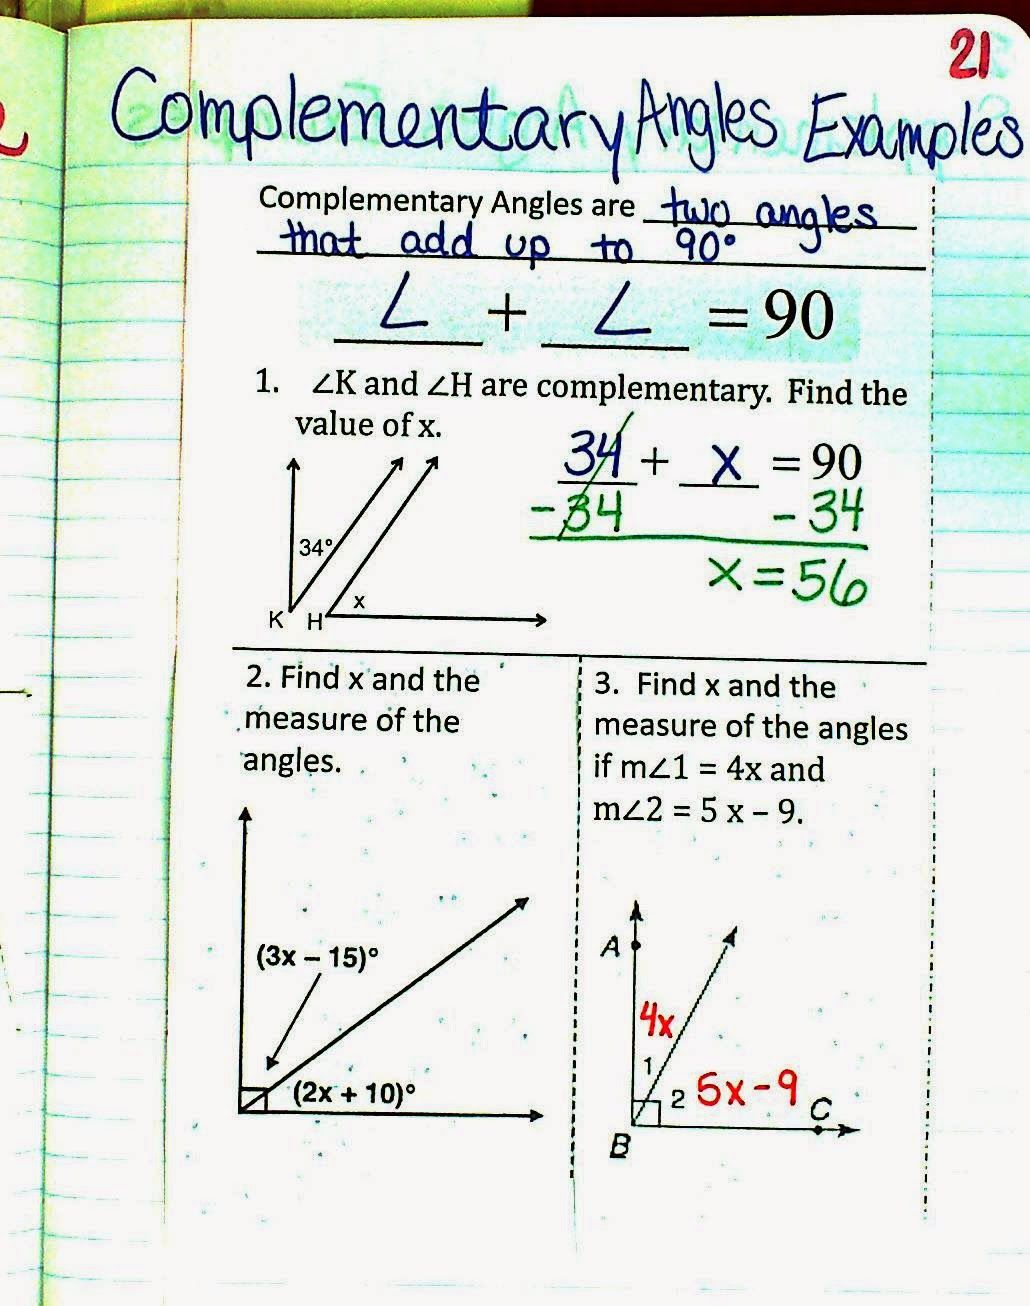 21
Complementary Angles Examples
Complementary Angles are two angles
that add up to 90°
∠ + ∠ = 90
1. ∠K and ∠H are complementary. Find the
value of x.
34 + x = 90
-34 -34
x = 56
34°
x
K H
2. Find x and the
measure of the
angles.
(3x – 15)°
(2x + 10)°
3. Find x and the
measure of the angles
if m∠1 = 4x and
m∠2 = 5 x – 9.
A
4x
1
2 5x-9
C
B